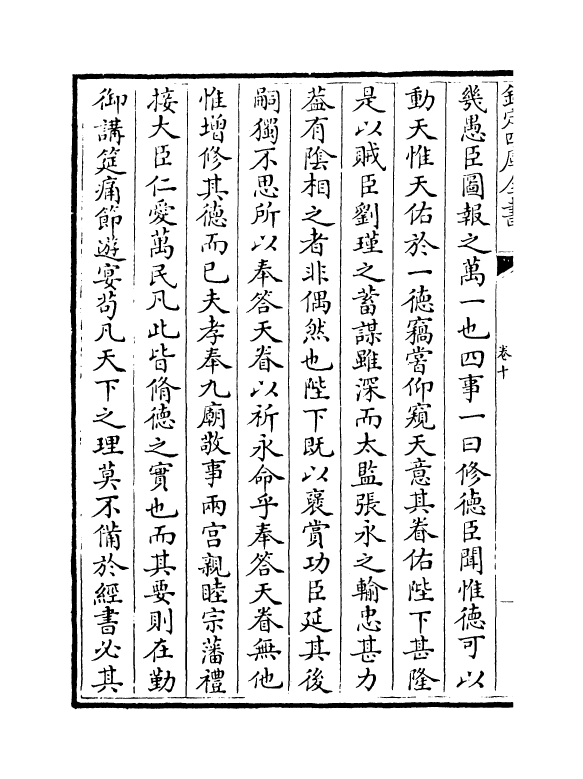 欽定四庫全書
卷十
幾愚臣圖報之萬一也四事一曰修德臣聞惟德可以
動天惟天佑於一德竊嘗仰窺天意其眷佑陛下甚隆
是以賊臣劉瑾之蓄謀雖深而太監張永之輸忠甚力
葢有隂相之者非偶然也陛下既以襃賞功臣延其後
嗣獨不思所以奉答天眷以祈永命乎奉答天眷無他
惟增修其德而已夫孝奉九廟敬事兩宫親睦宗藩禮
接大臣仁愛萬民凡此皆脩德之實也而其要則在勤
御講筵痛節遊宴茍凡天下之理莫不備於經書必其